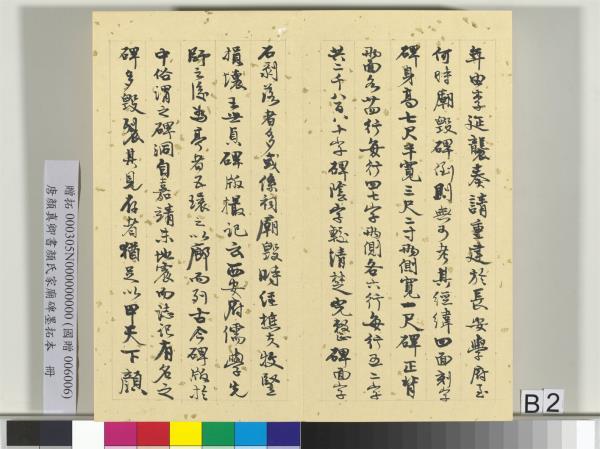 年由李延襲奏請重建於長安學府至
何時廟毀碑倒則無可考其經緯四面刻字
碑身高七尺半寬三尺二寸兩側寬一尺碑正背
兩面各廿四行每行四七字兩側各六行每行五二字
共二千八百八十字碑陰字輕清楚完整碑面字
石剥落者多或係祠廟毀時經樵夫牧豎
損壞王世貞碑版樶記云西安府儒學先
師之後為亭者五環之以廊而列古今碑版於
中俗謂之碑洞自嘉靖末地震而誌記有名之
碑多毀裂其見存者猶足以甲天下顏
贈拓 000305N000000000 (國贈 006006)
唐顏真卿書顏氏家廟碑墨拓本 冊
B 2